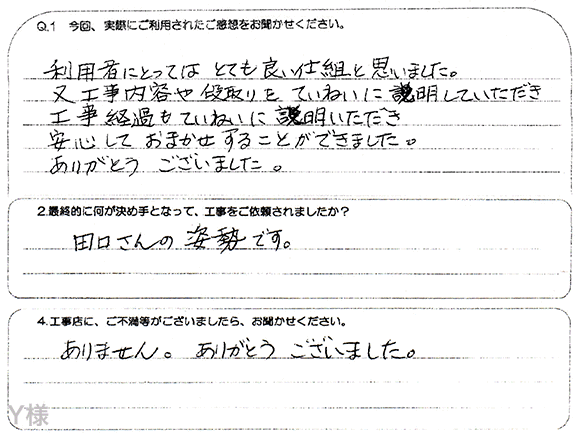 Q.1 今回、実際にご利用されたご感想をお聞かせください。
利用者にとっては とても良い仕組と思いました。
又工事内容や段取りを ていねいに説明していただき
工事経過もていねいに説明いただき
安心して おまかせすることができました。
ありがとう ございました。
2.最終的に何が決め手となって、工事をご依頼されましたか?
田口さんの姿勢です。
4.工事店に、ご不満等がございましたら、お聞かせください。
ありません。ありがとう ございました。
Y様